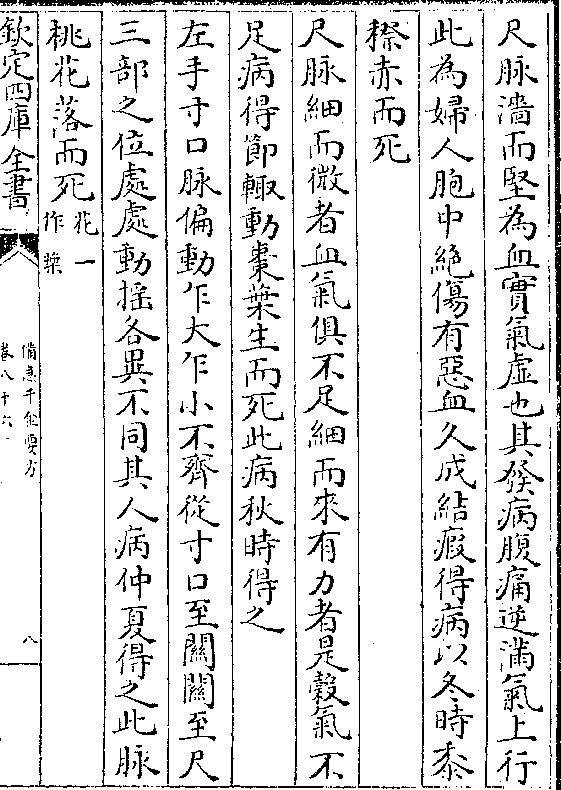 尺脉濇而堅為血實氣虛也其發病腹痛逆滿氣上行
此為婦人胞中絶傷有惡血久成結瘕得病以冬時黍
穄赤而死
尺脉細而微者血氣俱不足細而來有力者是穀氣不
足病得節輙動棗葉生而死此病秋時得之
左手寸口脉偏動乍大乍小不齊從寸口至關關至尺
三部之位處處動揺各異不同其人病仲夏得之此脉
桃花落而死花一作葉
欽定四庫全書
備急千金要方
卷八十六
八